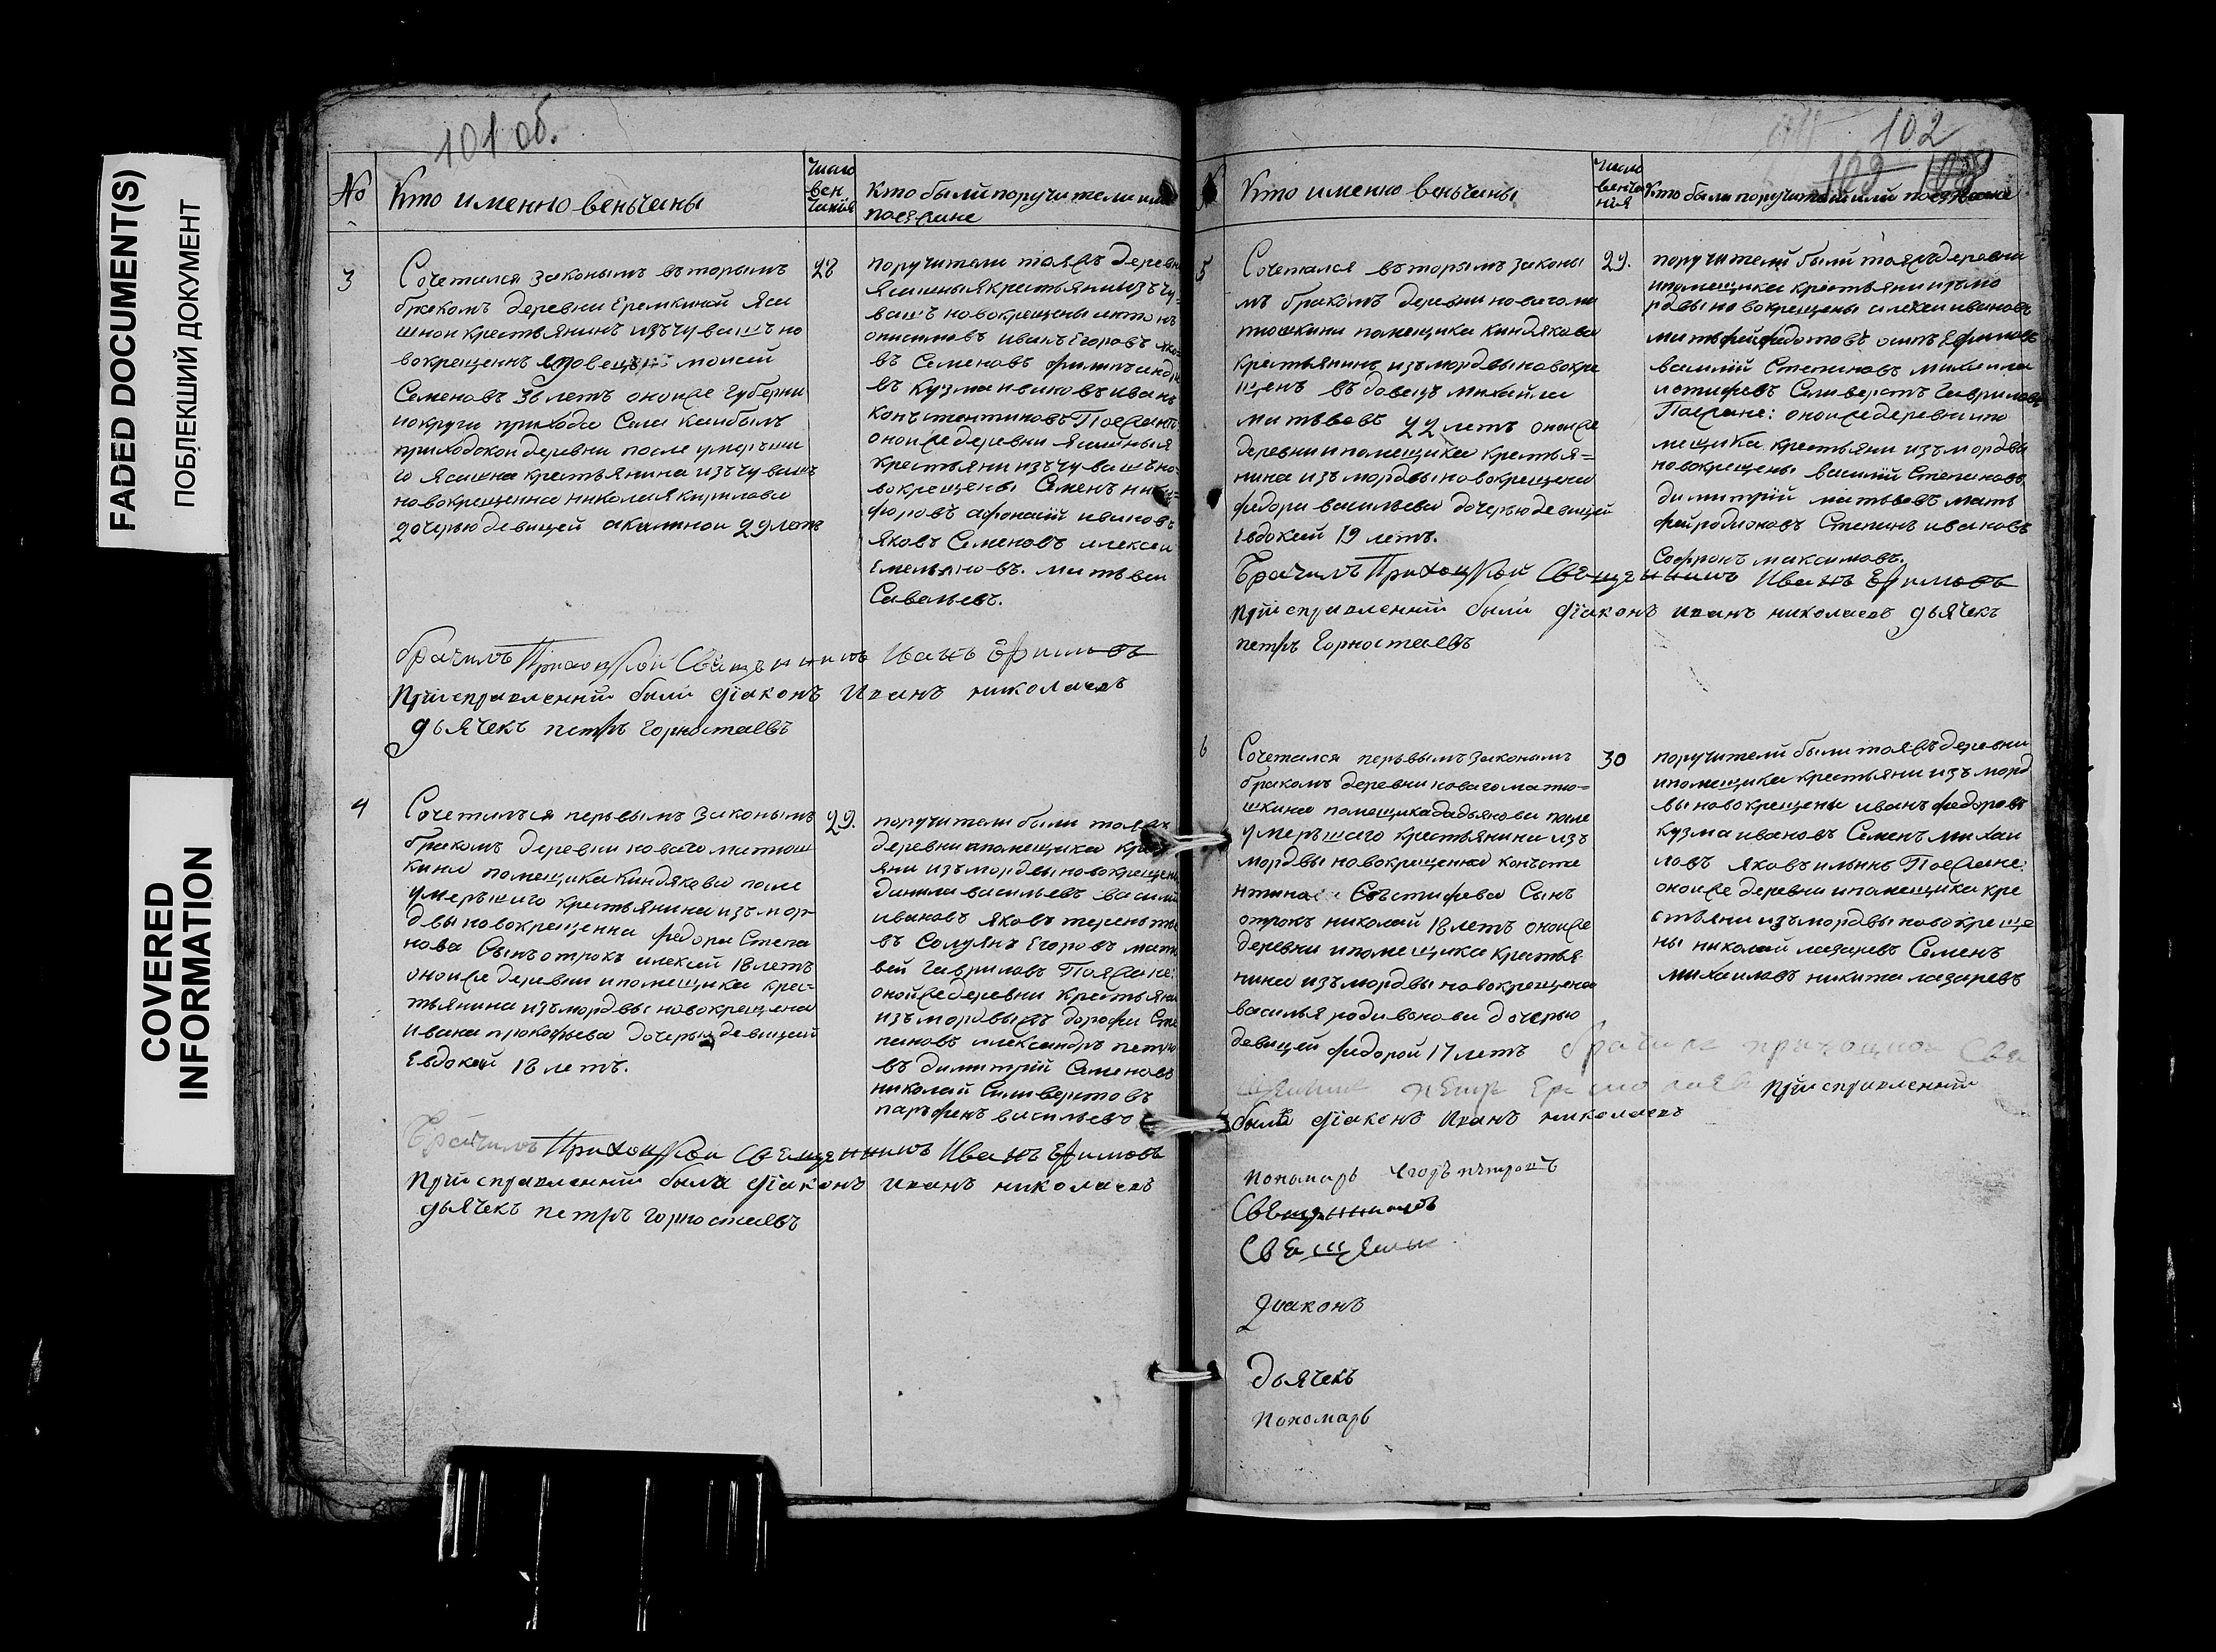 FADED DOCUMENT(S)
ПОБЛЕКШИЙ ДОКУМЕНТ
COVERED
INFORMATION
101 об.
№
Кто именно веньчаны
число
вен
чания
Кто были поручители или
поезжане
3
Сочетался законымъ вторымъ
28
бракомъ деревни Еремкиной яса
шной крестьянинъ изъ чувашъ но
вокрещенъ вдовецъ моисей
Семеновъ 36 летъ оной же губерни
и округи прихода Села
приходской деревни после умерьша
го ясашна крестьянина изъ чувашъ
новокрещенна николая кирилова
дочерью девицей акилиной 29 летъ
поручители тоя жъ деревни
ясашныя крестьяни изъ чу-
вашъ новокрещены антонъ
анисимовъ иванъ Егоровъ
въ Семеновъ филипъ андре
въ Кузма ивановъ иванъ
констентиновъ Поезжанъ:
оной же деревни ясашныя
крестьяни изъ чувашъ но-
вокрещены Семенъ ники-
форовъ афонасий ивановъ
яковъ Семеновъ алексей
Емельяновъ. матвей
Савельевъ.
брачилъ Приходской Священникъ Иванъ Ефимовъ
При справлении были диаконъ Иванъ николаевъ
дьячекъ петръ Горностаевъ
4
Сочетался первымъ законымъ
29.
бракомъ деревни новаго матюш
кина помещика Киндякова после
умершаго крестьянина изъ мор-
двы новокрещенна федора Степа
нова Сынъ отрокъ алексей 18 летъ
оной же деревни и помещика крес-
тьянина изъ мордвы новокрещена
ивана прокофьева дочерью девицей
Евдокеей 18 летъ.
поручители были тоя жъ
деревни и помещика крес
яни изъ мордвы новокрещены
данила васильевъ василий
ивановъ яковъ тереньтье
въ Солуянъ Егоровъ мать
вей Гавриловъ Поезжане:
оной же деревни крестьяни
изъ мордвы жъ дорофей Сте
пановъ александръ петро
въ димитрий Семеновъ
николай Силиверстовъ
парьфенъ васильевъ
Брачилъ Приходской Священникъ Иванъ Ефимовъ
При справлении были диаконъ иванъ николаевъ
дьячекъ петръ горностаевъ
102
Кто именно веньчаны
число
венча
ния
Кто были поручители или поезжане
5
Сочетался вторымъ законы
29.
мъ бракомъ деревни новаго ма
тюшкина помещика киндякова
крестьянинъ изъ мордвы новокре
щенъ вдовецъ михайла
матвеевъ 22 летъ оной же
деревни и помещика крестья-
нина изъ мордвы новокрещена
федора васильева дочерью девицей
Евдокеей 19 летъ.
поручители были тоя жъ деревни
и помещика крестьяни изъ мо
рдвы новокрещены алексей ивановъ
матьфей федотовъ осипъ Ефимовъ
василий Степановъ михайла
Селиверстъ Гавриловъ
Поезжане: оной же деревни и по
мещика крестьяни изъ мордвы
новокрещены василий Степановъ
димитрий матвеевъ мать
фей родионовъ Степанъ ивановъ
Софронъ максимовъ.
Брачилъ Приходской Священникъ Иванъ Ефимовъ
При справлении были диаконъ иванъ николаевъ дьячекъ
петръ Горностаевъ
6
Сочетался первымъ законымъ
30
бракомъ деревни новаго матю-
шкина помещика дадьянова после
умершаго крестьянина изъ
мордвы новокрещенна констe
нтина Евстифева Сынъ
отрокъ николай 18 летъ оной же
деревни и помещика крестья
нина изъ мордвы новокрещена
василья родивонова дочерью
девицей федорой 17 летъ
поручители были тоя жъ деревни
и помещика крестьяни изъ морд
вы новокрещены иванъ федоровъ
кузма ивановъ Семенъ михай
ловъ яковъ илинъ Поезжане:
оной же деревни и помещика кре
стьяни изъ мордвы новокреще
ны николай лазаревъ Семенъ
михаиловъ никита лазаревъ
При справлении
были диаконъ Иванъ николаевъ
пономарь Егоръ петровъ
Священникъ
диаконъ
дьячекъ
пономарь